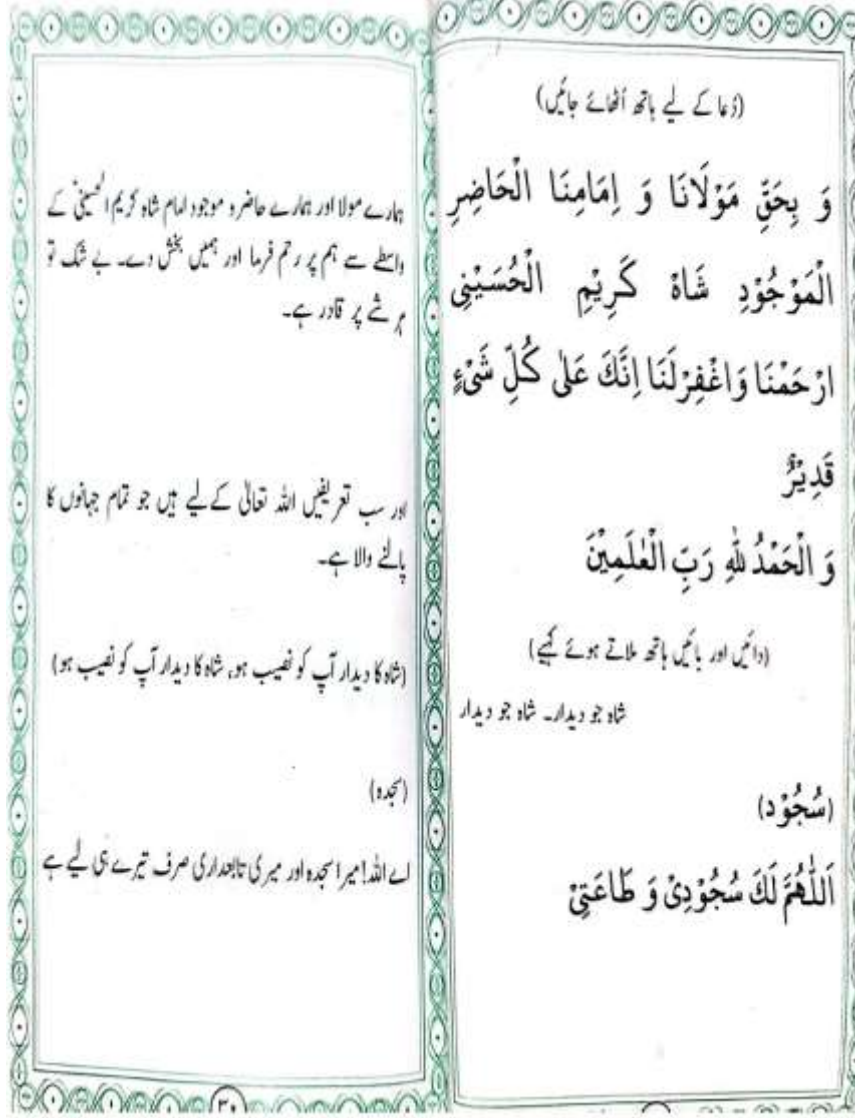 (دُعا کے لیے ہاتھ اُٹھائے جائیں)
وَ بِحَقِّ مَوْلَانَا وَ اِمَامِنَا الْحَاضِرِ
الْمَوْجُوْدِ شَاہْ کَرِیْمِ الْحُسَیْنِی
ارْحَمْنَا وَاغْفِرْلَنَا اِنَّكَ عَلٰی کُلِّ شَیْءٍ
قَدِیْرٌ
وَ الْحَمْدُ لِلّٰهِ رَبِّ الْعٰلَمِیْنَ
(دائیں اور بائیں ہاتھ ملاتے ہوئے کہیے)
شاہ جو دیدار۔ شاہ جو دیدار
(سُجُوْد)
اَللّٰهُمَّ لَكَ سُجُوْدِیْ وَ طَاعَتِیْ
ہمارے مولا اور ہمارے حاضر و موجود امام شاہ کریم الحسینی کے
واسطے سے ہم پر رحم فرما اور ہمیں بخش دے۔ بے شک تو
ہر شے پر قادر ہے۔
اور سب تعریفیں اللہ تعالیٰ کے لیے ہیں جو تمام جہانوں کا
پالنے والا ہے۔
(شاہ کا دیدار آپ کو نصیب ہو، شاہ کا دیدار آپ کو نصیب ہو)
(سجدہ)
اے اللہ! میرا سجدہ اور میری تابعداری صرف تیرے ہی لیے ہے
۳۰